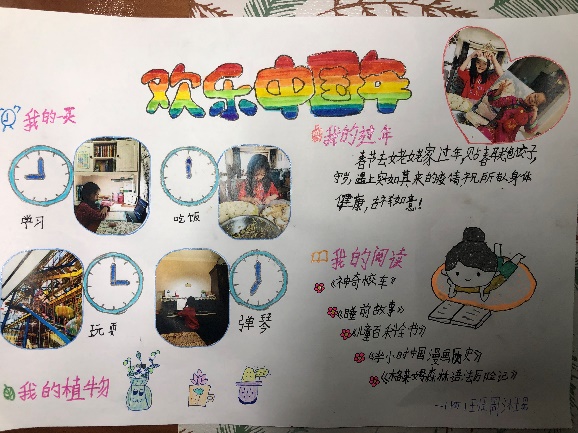 欢乐中国年
我的一天
学习
吃饭
玩耍
弹琴
我的植物
我的过年
春节去姥姥家过年,贴春联包饺子,
守岁,遇上突如其来的疫情祝所有人身体
健康,吉祥如意!
我的阅读
《神奇校车》
《睡前故事》
《儿童百科全书》
《半小时中国漫画历史》
《格莱姆森林语法历险记》